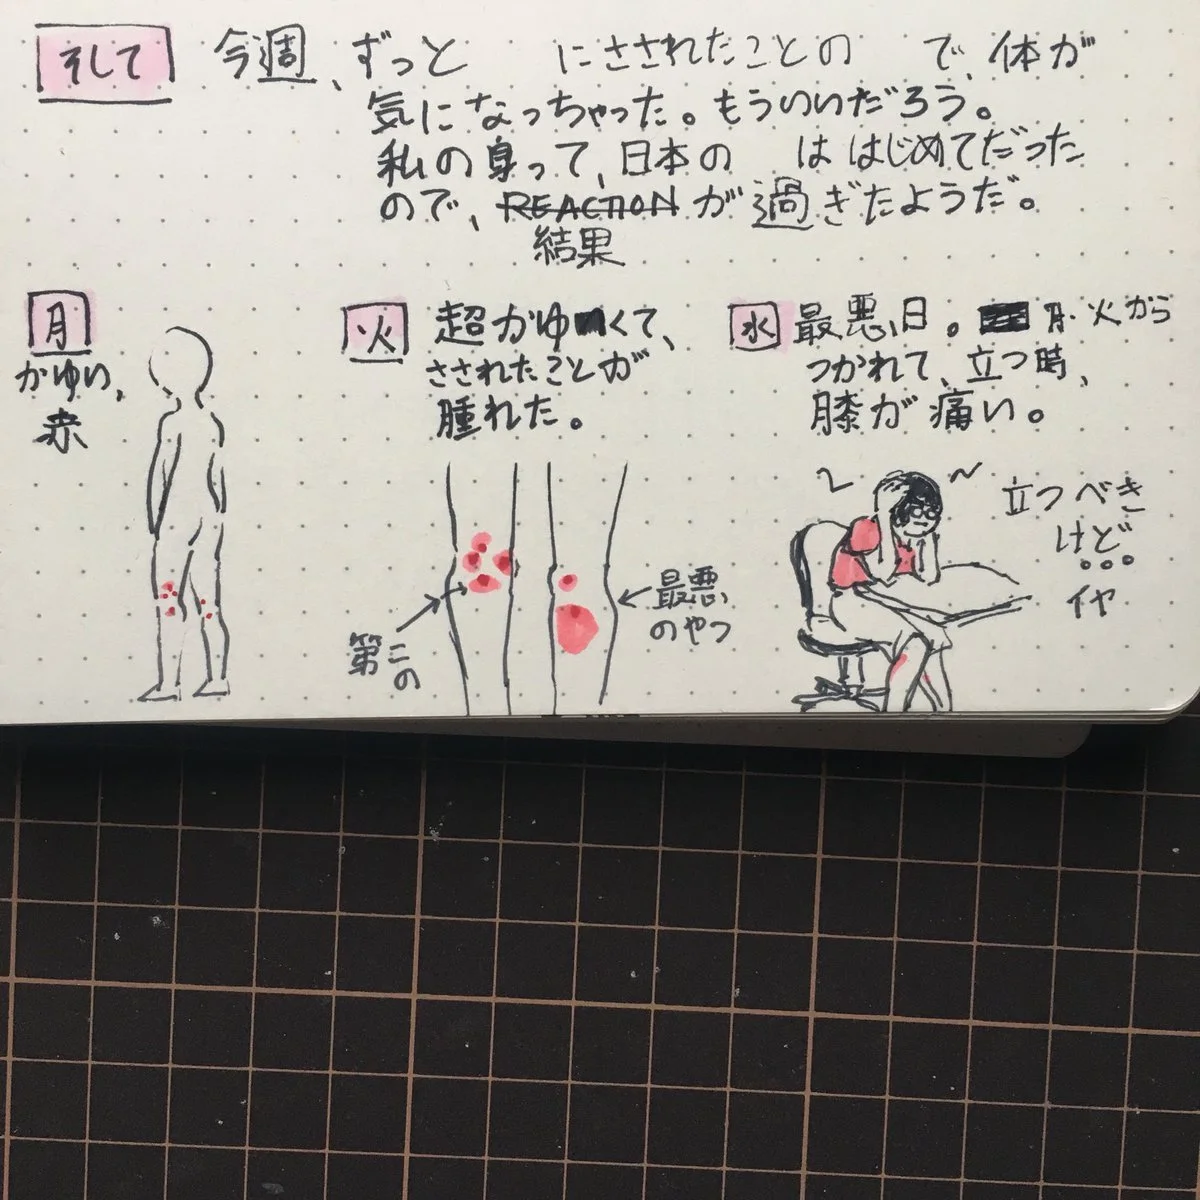 そして 今週、ずっと にさされたことの で、体が
気になっちゃった。もういいだろう。
私の身って、日本の は はじめてだった
ので、REACTION が過ぎたようだ。
結果
月
かゆい、
赤
火 超かゆくて、
さされたことが
腫れた。
第二の
最悪
のやつ
水 最悪日。月・火から
つかれて、立つ時、
膝が痛い。
立つべき
けど。。。
イヤ